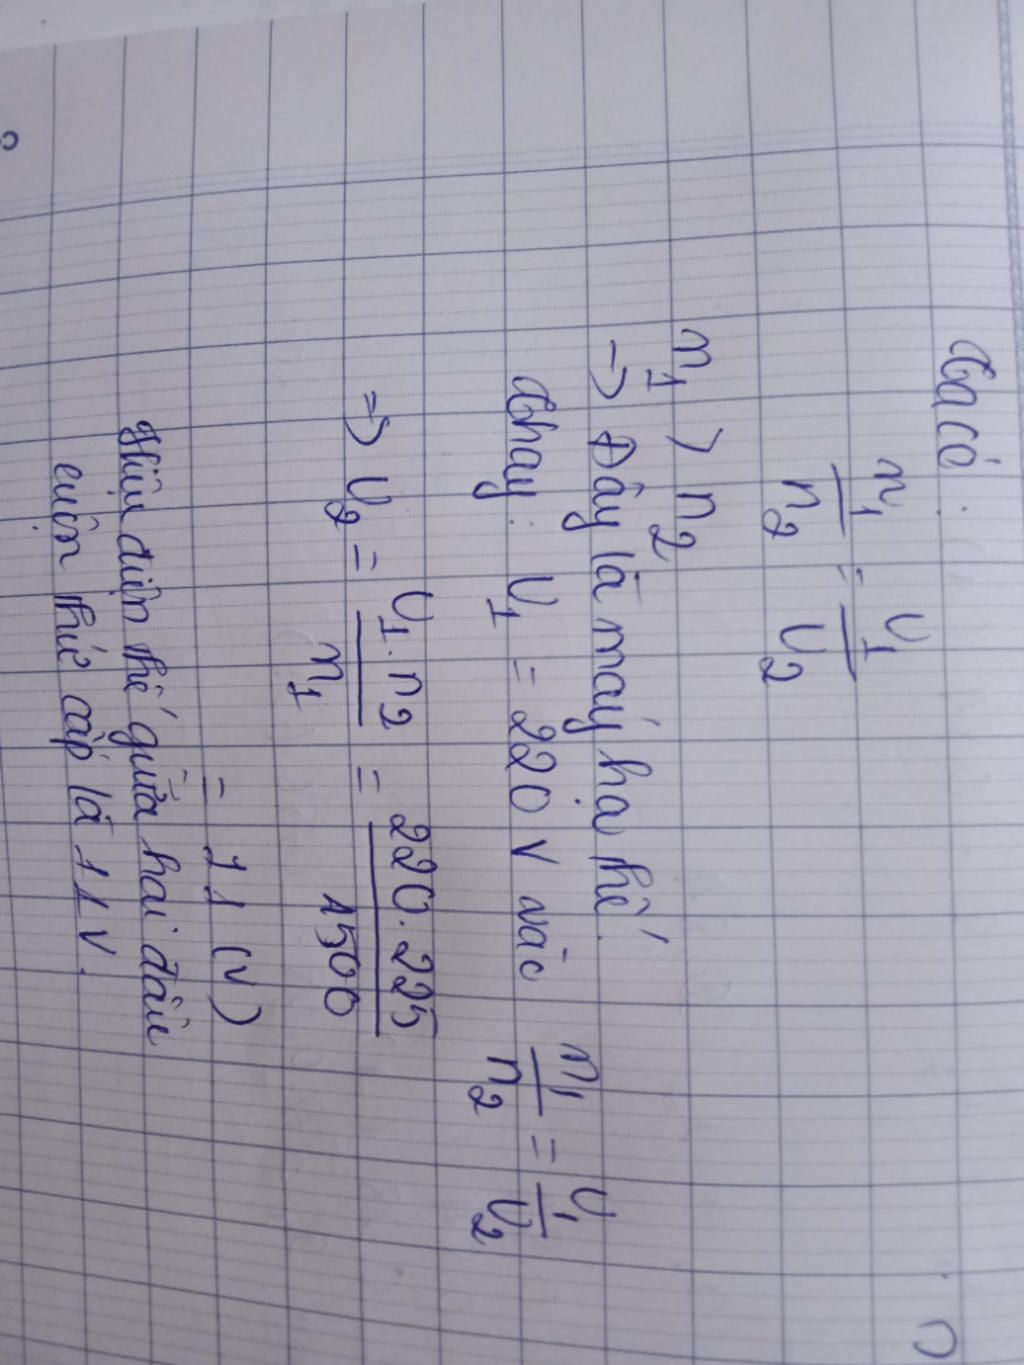 Ta có: n₁/n₂ = U₁/U₂
n₁ > n₂
→ Đây là máy hạ thế.
Thay: U₁ = 220 V vào n₁/n₂ = U₁/U₂
=> U₂ = U₁.n₂/n₁ = 220.225/1500
= 11 (V)
Hiệu điện thế giữa hai đầu
cuộn thứ cấp là 11V.